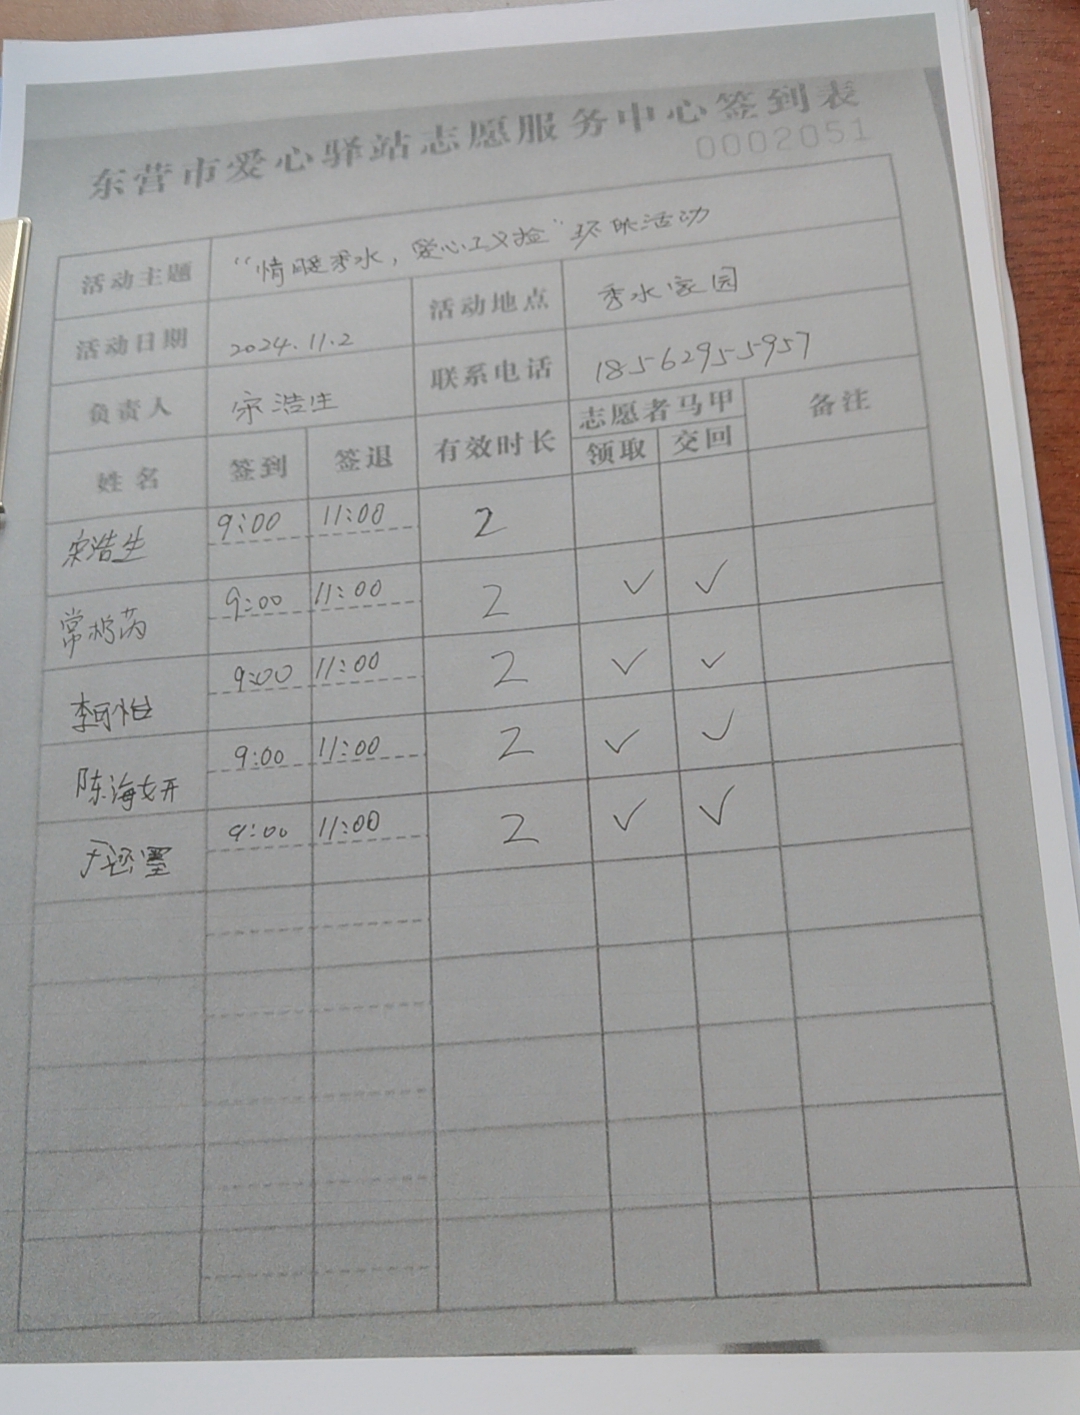 东营市爱心驿站志愿服务中心签到表
0002051
活动主题 “情暖秀水，爱心义捡”环保活动
活动日期 2024.11.2 活动地点 秀水家园
负责人 宋浩生 联系电话 18562955957
姓名 签到 签退 有效时长 志愿者马甲 备注
领取 交回
宋浩生 9:00 11:00 2
常 9:00 11:00 2 ✓ ✓
李可怡 9:00 11:00 2 ✓ ✓
陈海妍 9:00 11:00 2 ✓ ✓
墨 9:00 11:00 2 ✓ ✓